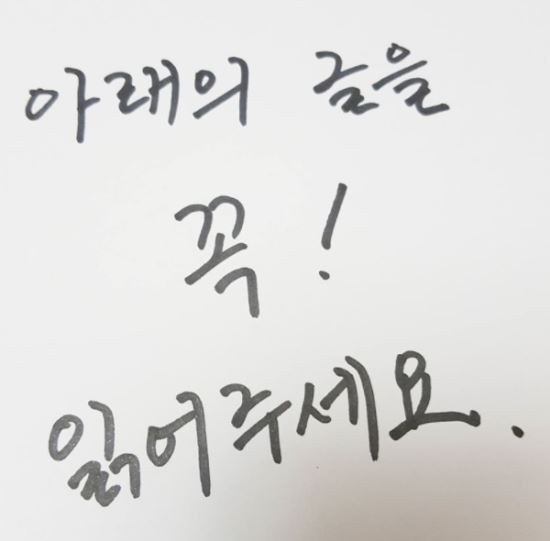 아래의 글을
꼭!
읽어주세요.